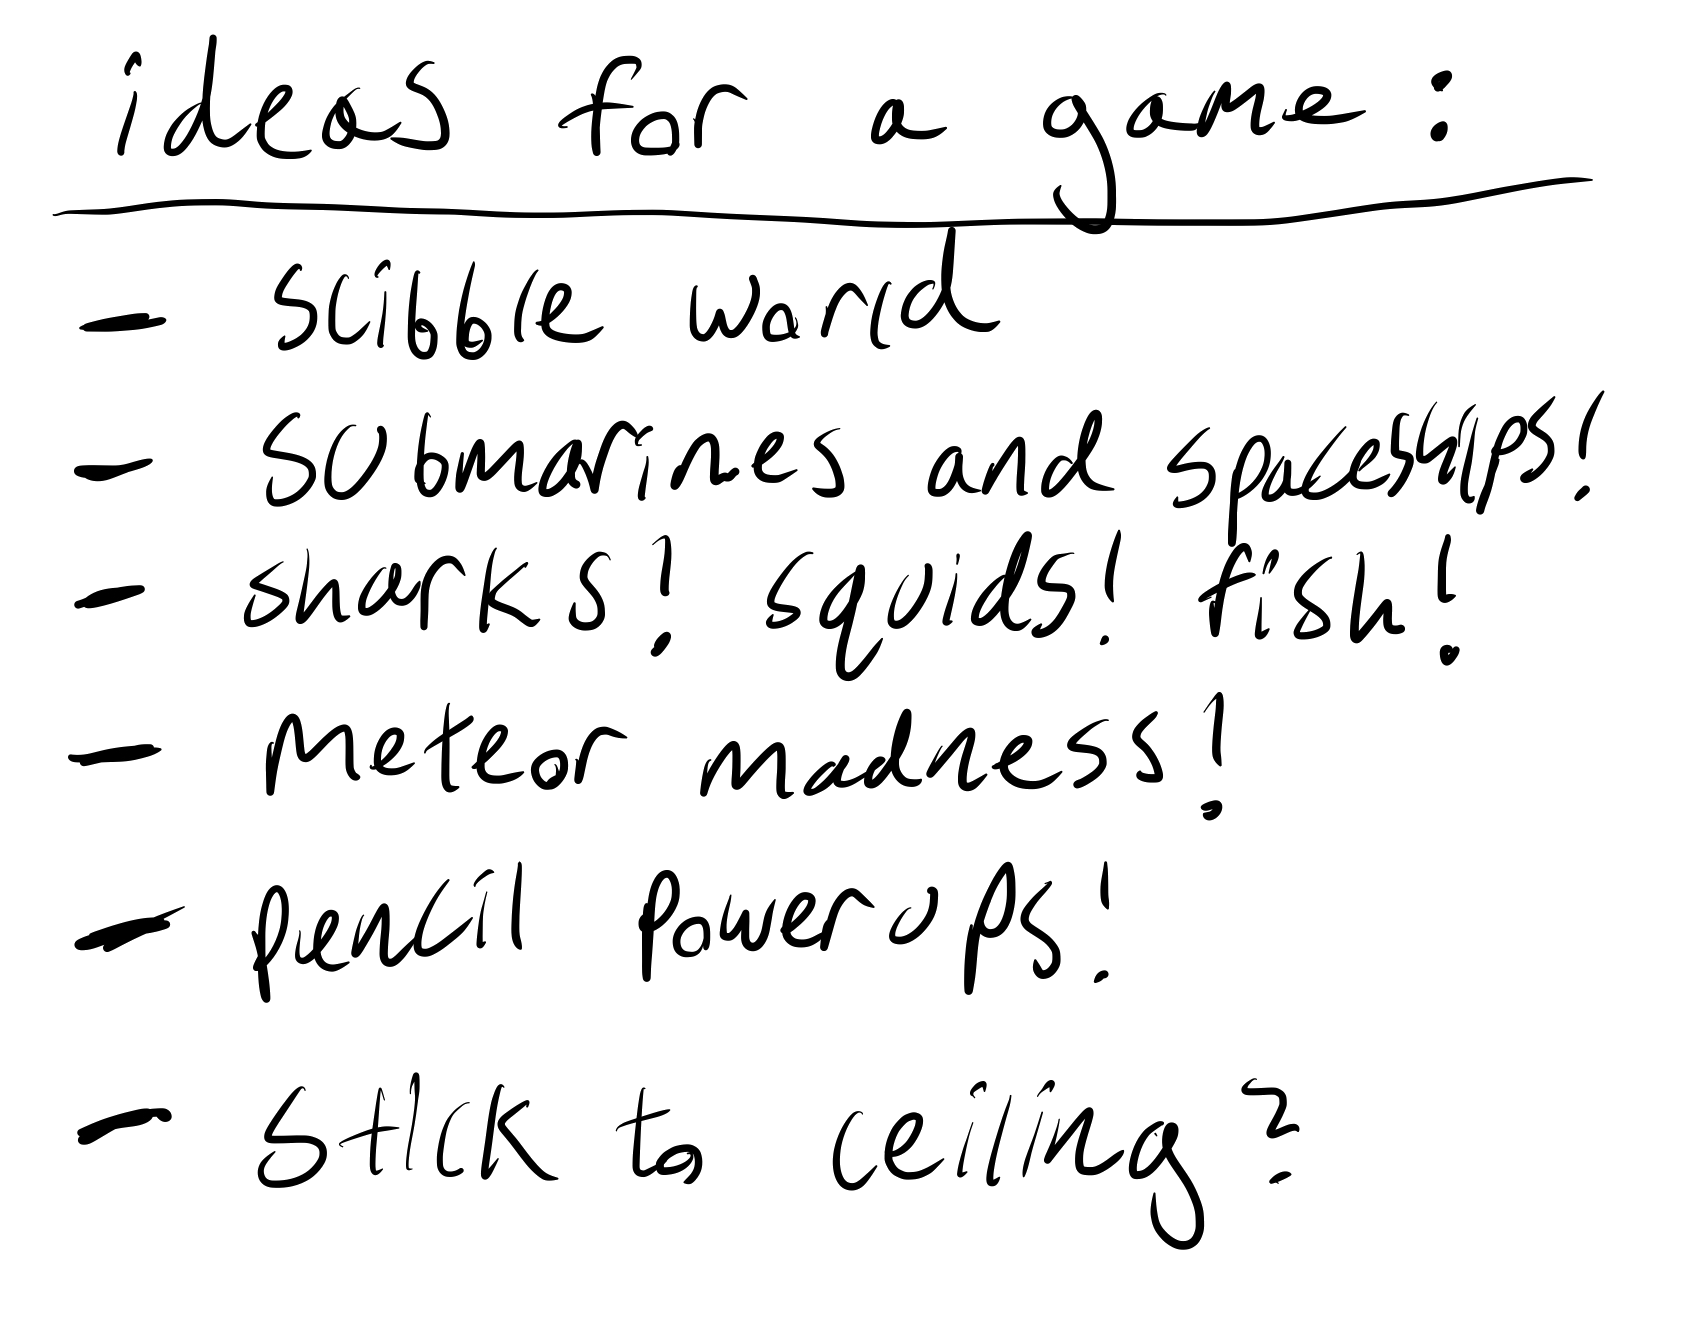 ideas for a game:
- scibble world
- submarines and spaceships!
- sharks! squids! fish!
- meteor madness!
- pencil power ups!
- stick to ceiling?